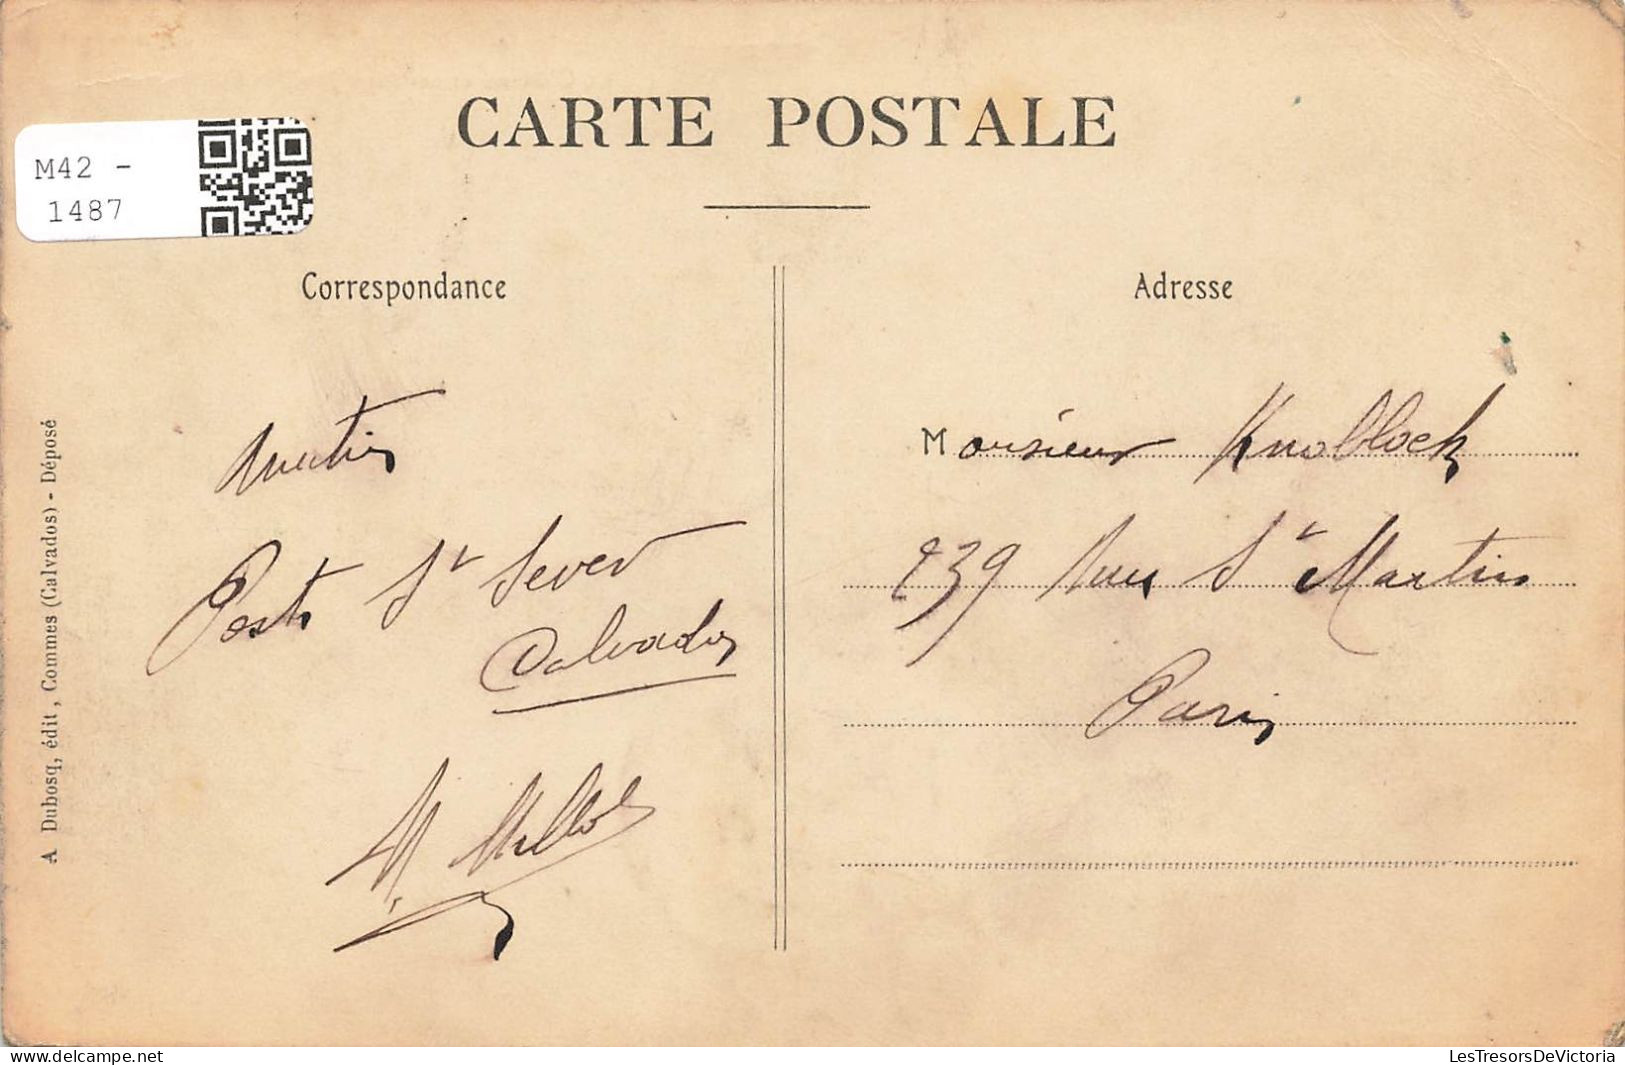 CARTE POSTALE
M42 -
1487
Correspondance
Adresse
Poste St Sever
Calvados
Monsieur Knobloch
239 Rue St Martin
Paris
A Dubosq, édit, Commes (Calvados) - Déposé
Les Tresors de Victoria @ Delcampe.net
LesTresorsDeVictoria